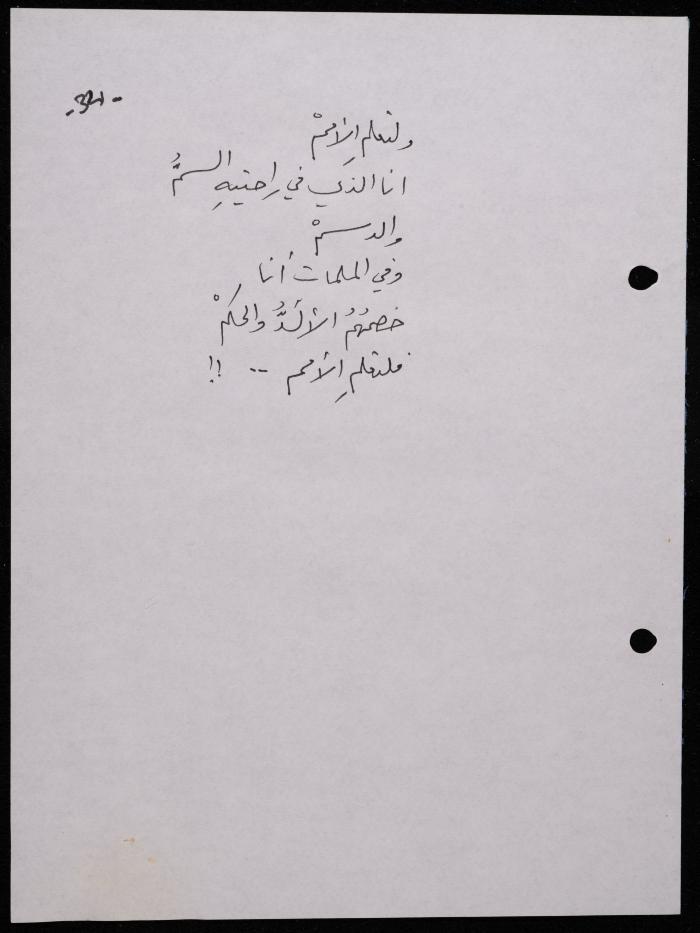 ولتعلمِ الأممْ
انا الذي في راحتيهِ السمُّ
والدسمْ
وفي الملمات أنا
خصمُهُمُ الألدُّ والحكمْ
فلتعلمِ الأمم .. !!